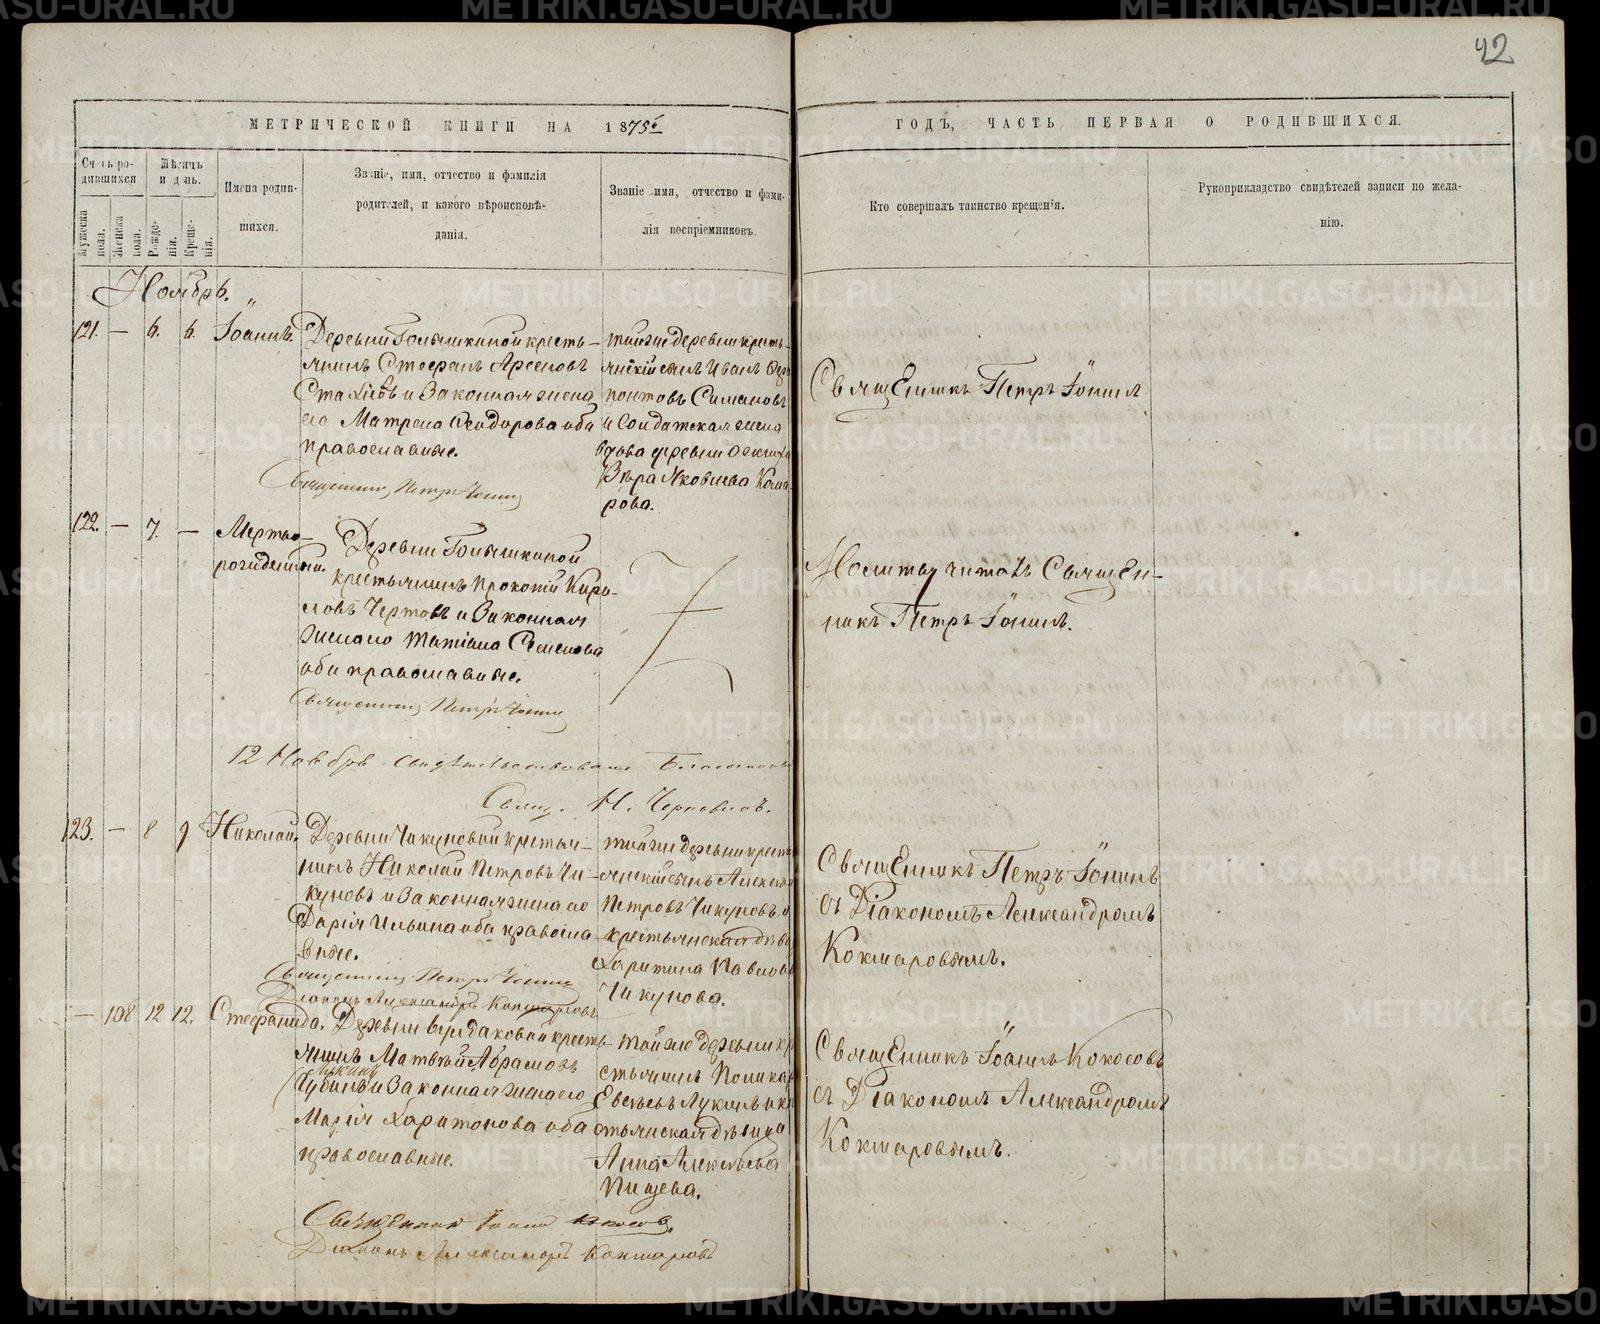 42
МЕТРИЧЕСКОЙ КНИГИ НА 1875
ГОДЪ, ЧАСТЬ ПЕРВАЯ О РОДИВШИХСЯ.
Счетъ родившихся
Мужеска пола.
Женска пола.
Мѣсяцъ и день.
Рожденія.
Крещенія.
Имена родившихся.
Званіе, имя, отчество и фамилія
родителей, и какого вѣроисповѣ-
данія.
Званіе имя, отчество и фами-
лія воспріемниковъ.
Кто совершалъ таинство крещенія.
Рукоприкладство свидѣтелей записи по жела-
нію.
Ноябрь.
121. — 6. 6. Іоаннъ.
Деревни Голышкиной кресть-
янинъ Стефанъ Арсеновъ
и Законная жена
его Матрена Ѳеодорова оба
православные.
Священникъ Петръ Іонинъ
тойже деревни кресть-
янскій сынъ Иванъ
Симановъ
и Солдатская жена
вдова деревни
Вѣра Яковлева
рова.
Священникъ Петръ Іонинъ
122. — 7. — Мертво-
рожденный.
Деревни Голышкиной
крестьянинъ Прокопій Кири-
ловъ Чертовъ и Законная
жена его Татіана Семенова
оба православные.
Священникъ Петръ Іонинъ
Молитву читалъ Священ-
никъ Петръ Іонинъ.
12 Ноября свидѣтельствовалъ
Свящ. Н.
123. — 8 9 Николай.
Деревни Чикуновой крестья-
нинъ Николай Петровъ Чи-
куновъ и Законная жена его
Дарія Ильина оба правосла-
вные.
Священникъ Петръ Іонинъ
Діаконъ Александръ Кокшаровъ
тойже деревни кресть
янскій сынъ
Петровъ Чикуновъ и
крестьянская дѣв
Харитина Павлов
Чикунова.
Священникъ Петръ Іонинъ
съ Діакономъ Александромъ
Кокшаровымъ.
— 108 12 12. Стефанида.
Деревни Бурдаковой кресть-
янинъ Матвѣй Абрамовъ
и Законная жена его
Марія Харитонова оба
православные.
Священникъ Іоаннъ Кокосовъ.
Діаконъ Александръ Кокшаровъ
тойже деревни кре
стьянинъ Поликар
Евсѣевъ Лукинъ и кре
стьянская дѣвица
Анна Алексѣева
Пищева.
Священникъ Іоаннъ Кокосовъ
съ Діакономъ Александромъ
Кокшаровымъ.
METRIKI.GASO-URAL.RU